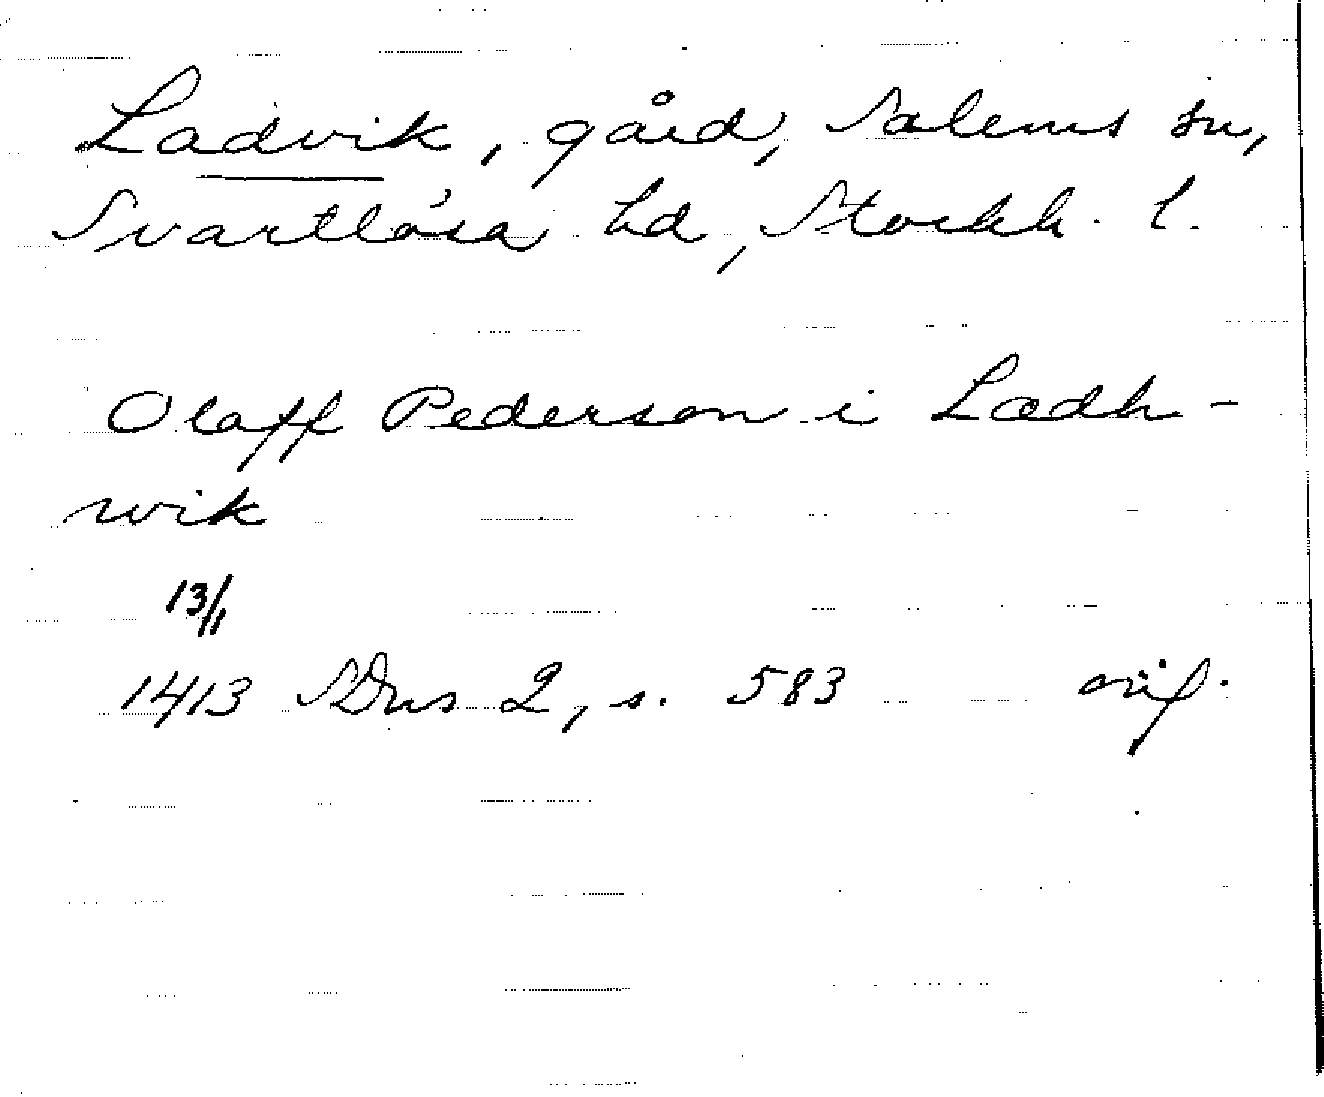 Ladvik, gård, Salems sn,
Svartlösa hd, Stockh. l.
Olaff Pederson i Ladh-
wik
13/1
1413 SDns 2, s. 583 orig.